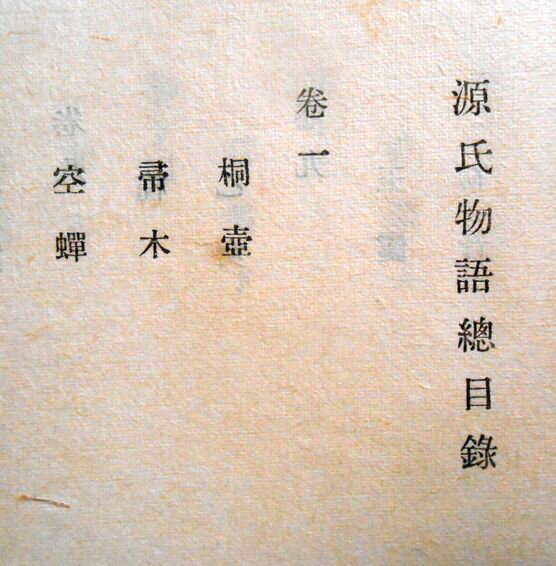 源氏物語總目錄
卷一
桐壺
帚木
空蟬